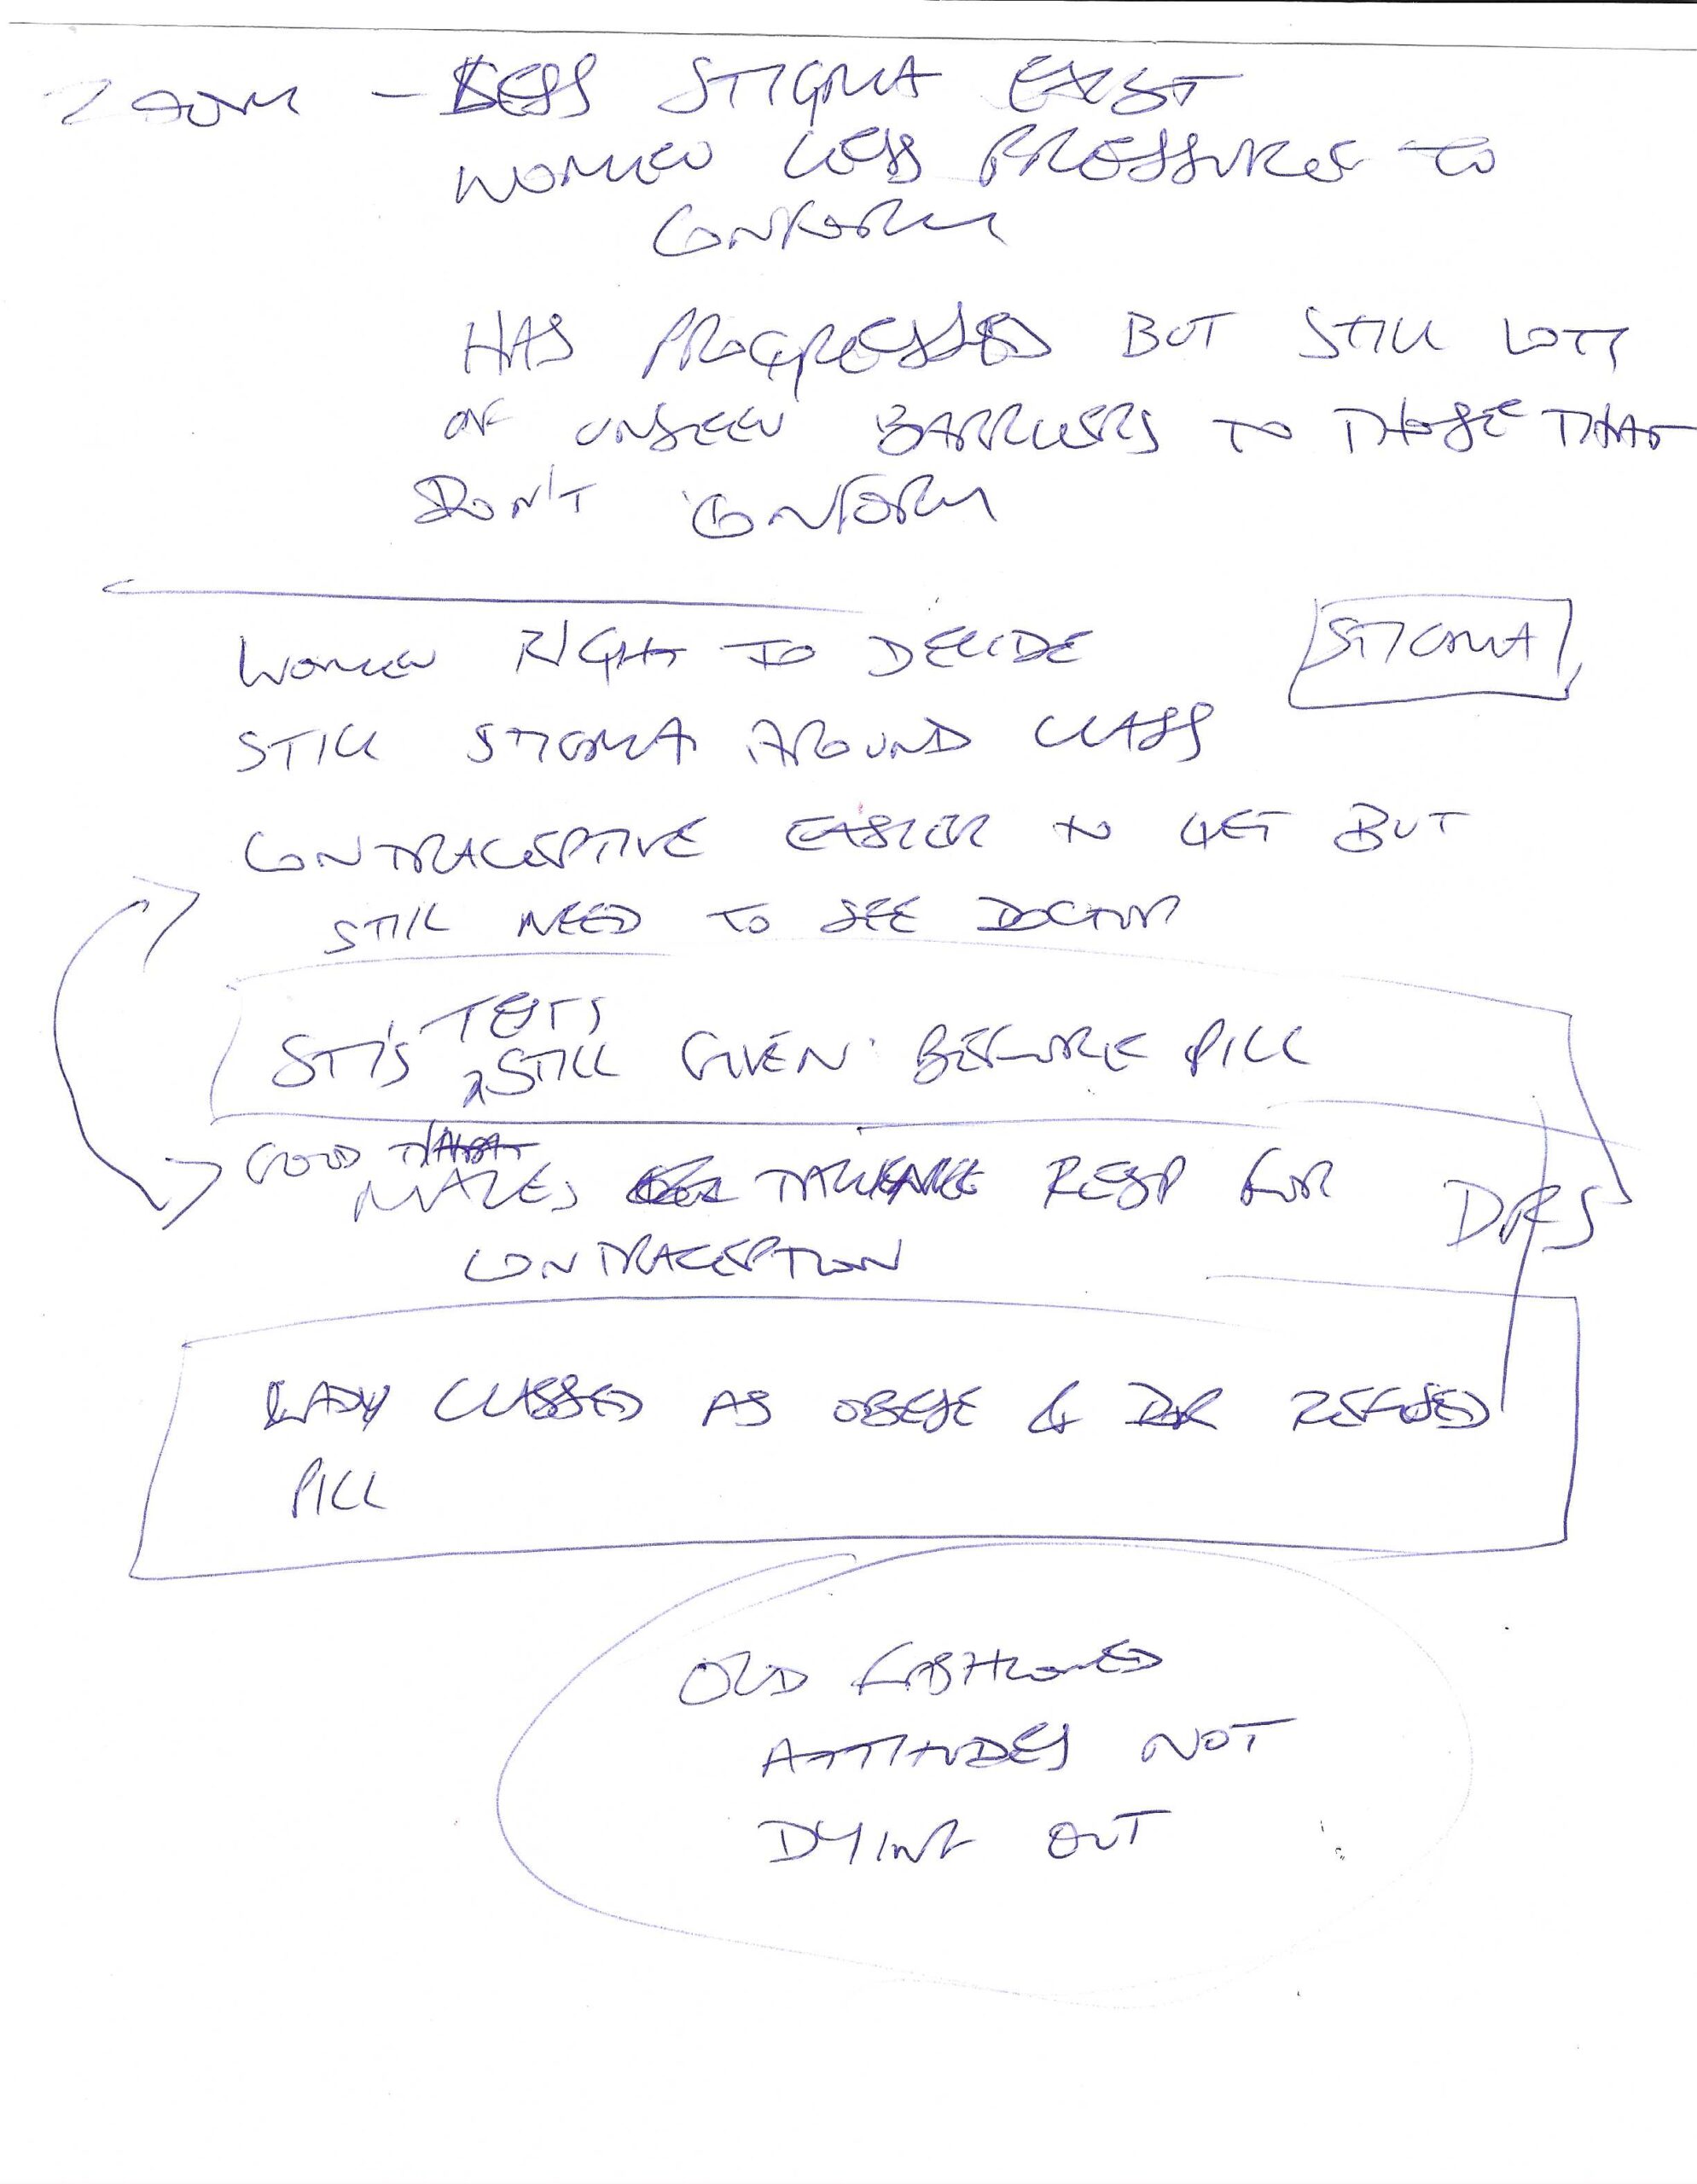 ZOOM - LESS STIGMA EXIST
WOMEN LESS PRESSURES TO
CONFORM
HAS PROGRESSED BUT STILL LOTS
OF UNSEEN BARRIERS TO THOSE THAT
DON'T CONFORM
WOMEN RIGHT TO DECIDE
STIGMA
STILL STIGMA AROUND CLASS
CONTRACEPTIVE EASIER TO GET BUT
STILL NEED TO SEE DOCTOR
TESTS
STI'S STILL GIVEN BEFORE PILL
GOOD THAT
MALES TAKE RESP FOR
DRS
CONTRACEPTION
LADY CLASSED AS OBESE & DR REFUSED
PILL
OLD FASHIONED
ATTITUDES NOT
DYING OUT